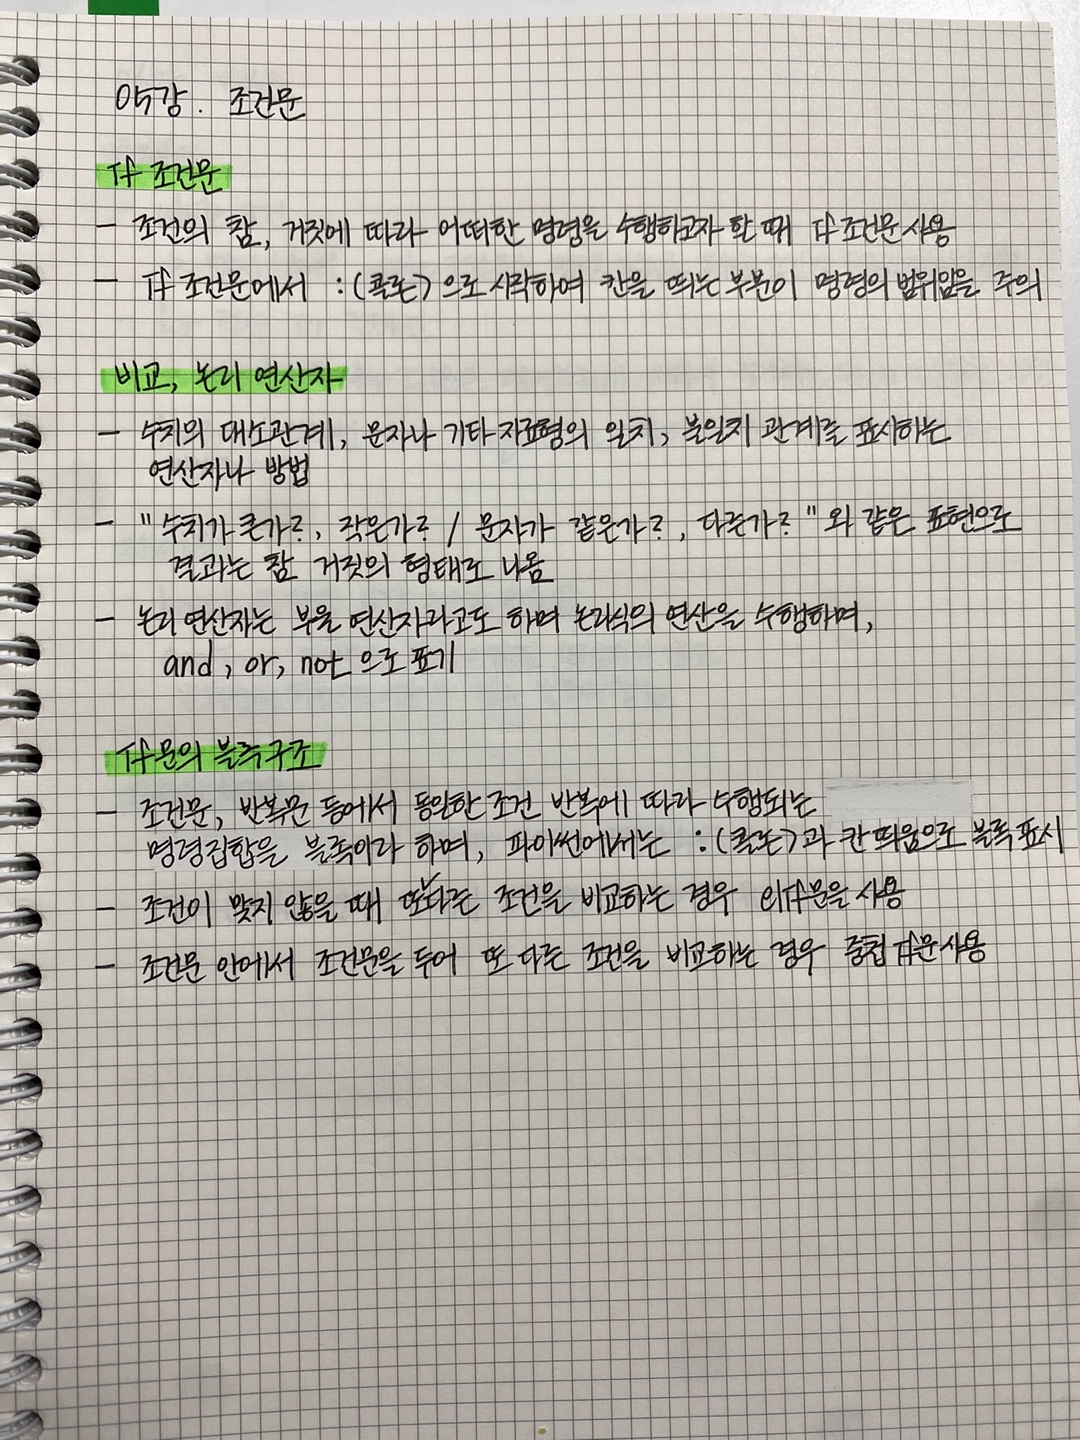 05강. 조건문
If 조건문
- 조건의 참, 거짓에 따라 어떠한 명령을 수행하고자 할 때 If 조건문 사용
- If 조건문에서 :(콜론)으로 시작하여 칸을 띄는 부분이 명령의 범위임을 주의
비교, 논리 연산자
- 수치의 대소관계, 문자나 기타 자료형의 일치, 불일치 관계를 표시하는
연산자나 방법
- "수치가 큰가?, 작은가? / 문자가 같은가?, 다른가?"와 같은 표현으로
결과는 참 거짓의 형태로 나옴
- 논리 연산자는 부울 연산자라고도 하며 논리식의 연산을 수행하며,
and, or, not 으로 표기
If문의 블록구조
- 조건문, 반복문 등에서 동일한 조건 반복에 따라 수행되는
명령집합을 블록이라 하며, 파이썬에서는 :(콜론)과 칸 띄움으로 블록 표시
- 조건이 맞지 않을 때 또 다른 조건을 비교하는 경우 elIf문을 사용
- 조건문 안에서 조건문을 두어 또 다른 조건을 비교하는 경우 중첩 If문 사용